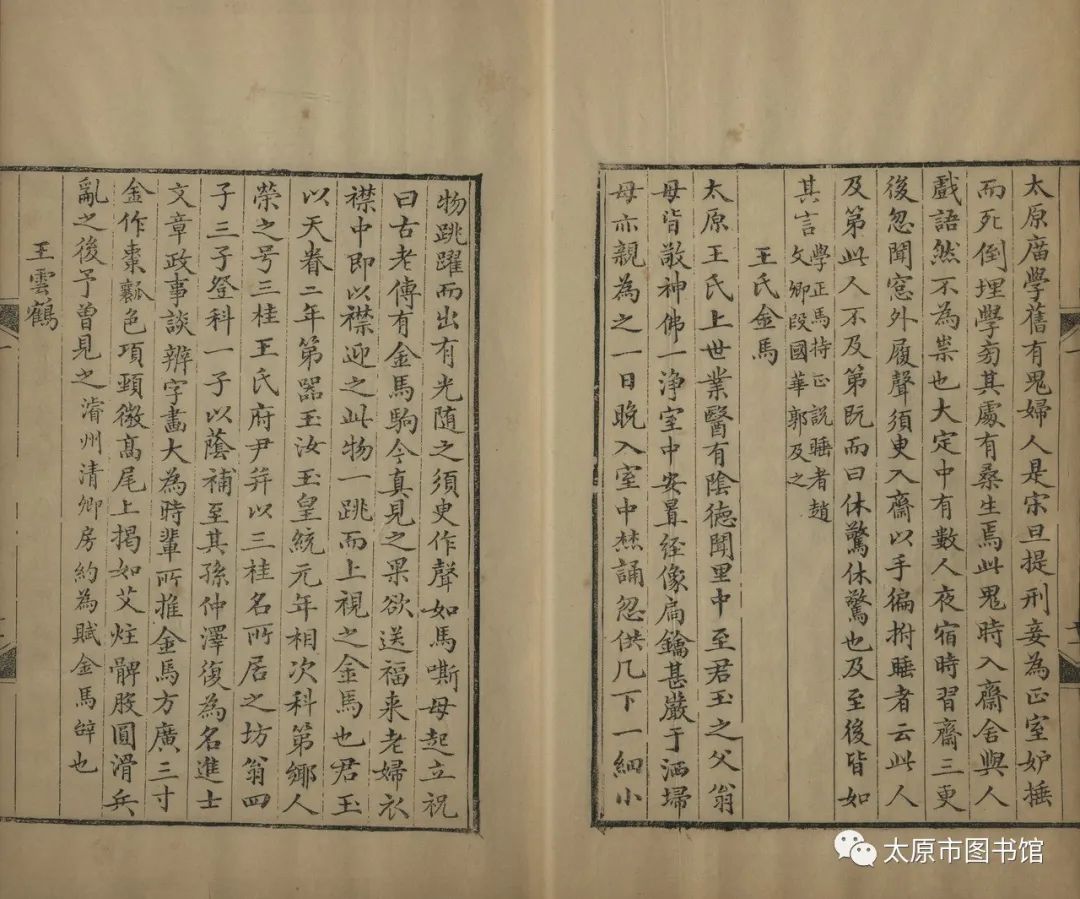 太原廣學舊有鬼婦人是宋旦提刑妾為正室妒捶
而死倒埋學旁其處有桑生焉此鬼時入齋舍與人
戲語然不為祟也大定中有數人夜宿時習齋三更
後忽聞窓外履聲須更入齋以手徧拊睡者云此人
及第此人不及第既而曰休驚休驚也及至後皆如
其言學正馬持正說睡者趙
文卿段國華郭及之
王氏金馬
太原王氏上世業醫有陰德聞里中至君玉之父翁
母皆敬神佛一淨室中安置经像扃鑰甚嚴于洒埽
母亦親為之一日晚入室中焚誦忽供几下一細小
物跳躍而出有光随之須更作聲如馬嘶母起立祝
曰古老傳有金馬駒今真見之果欲送福来老婦衣
襟中即以襟迎之此物一跳而上視之金馬也君玉
以天眷二年第器玉汝玉皇統元年相次科第鄉人
榮之号三桂王氏府尹并以三桂名所居之坊翁四
子三子登科一子以蔭補至其孫仲澤復為名進士
文章政事談辨字畫大為時輩所推金馬方廣三寸
金作棗瓤色項頸微高尾上揭如艾炷髀股圓滑兵
亂之後予曾見之濬州清卿房約為賦金馬辭也
王雲鶴
太原市图书馆